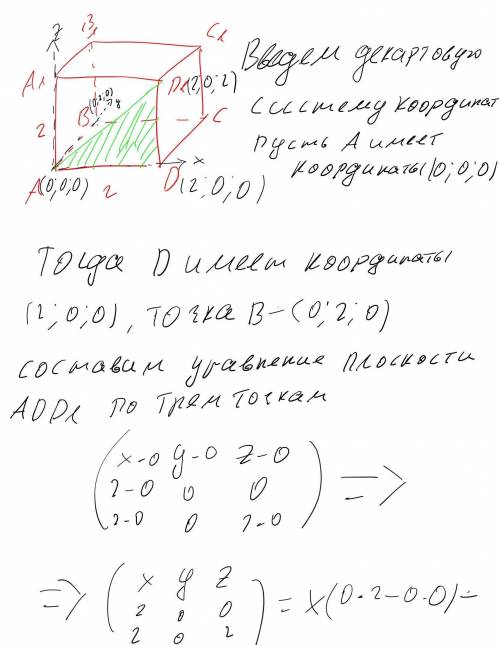 Z
B1
C1
A1
D1(2;0;2)
(0;2;0)
y
B
C
2
x
A(0;0;0)
2
D(2;0;0)
Введем декартовую
систему координат
пусть A имеет
координаты (0;0;0)
Тогда D имеет координаты
(2;0;0), точка B-(0;2;0)
составим уравнение плоскости
ADD1 по трем точкам
x-0 y-0 z-0
2-0 0 0
2-0 0 2-0
=>
=> ( x y z
2 0 0
2 0 2 ) = x(0·2-0·0)-